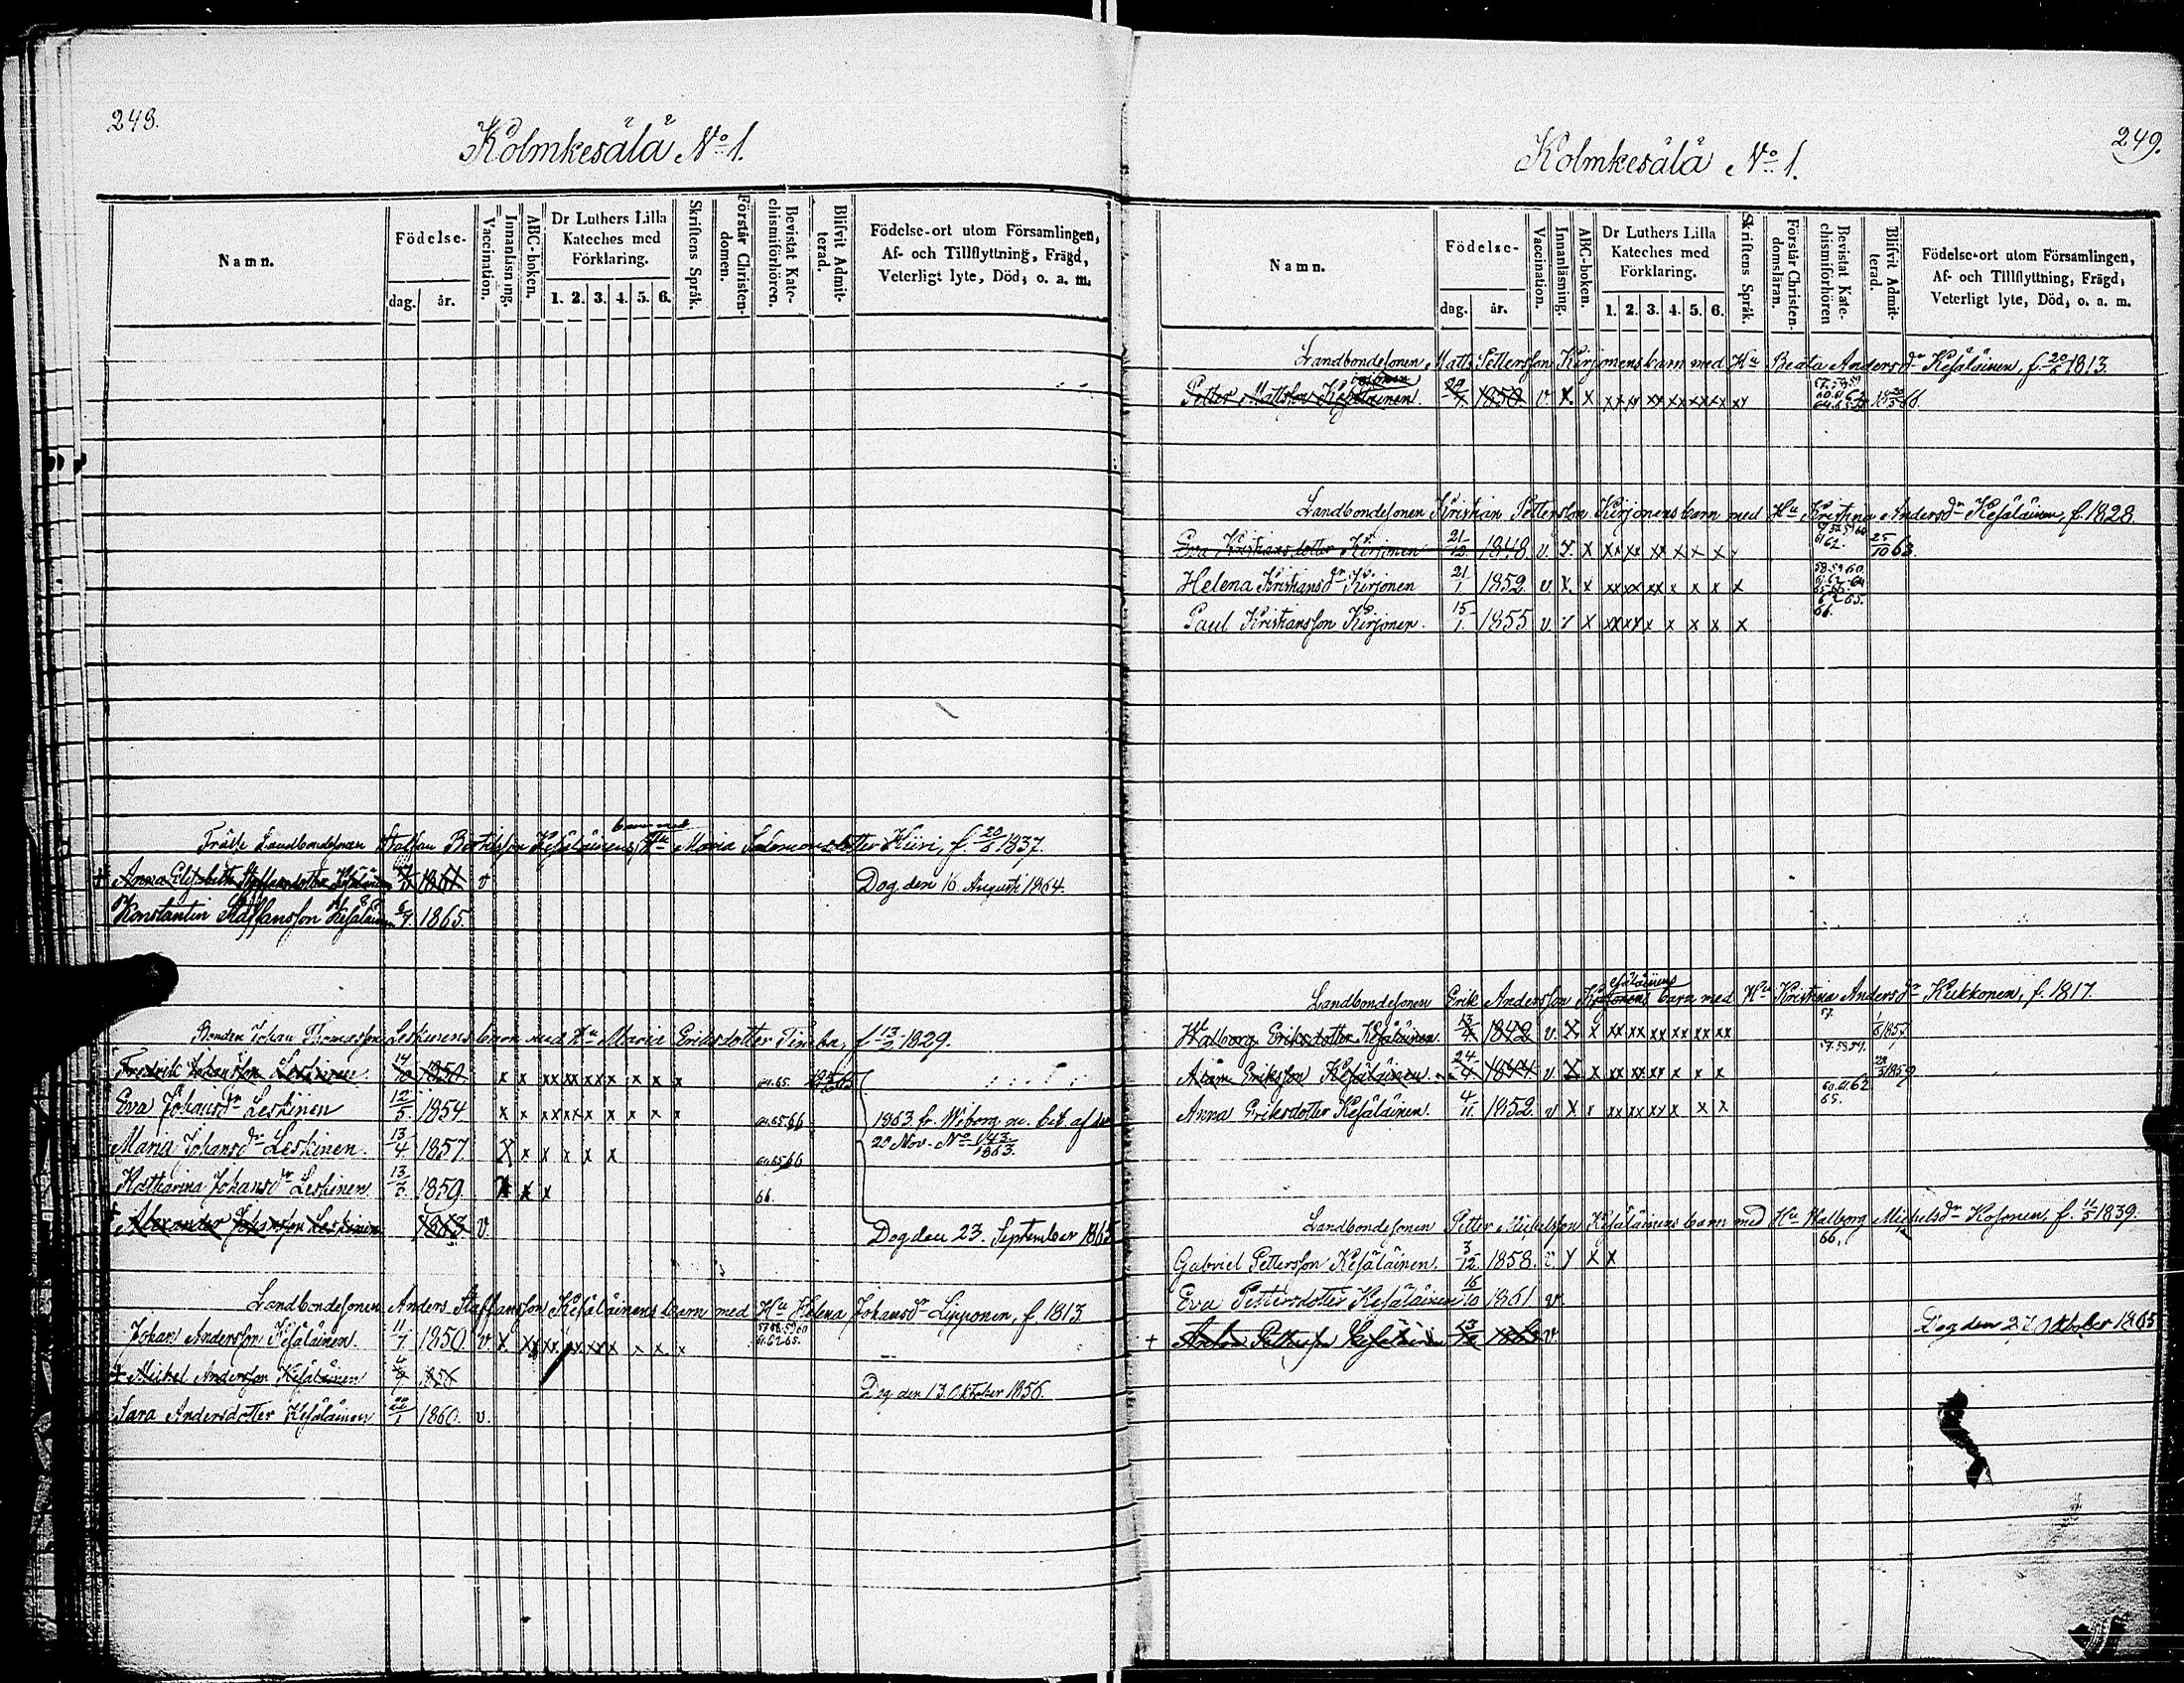 248.
Kolmkesälä No 1.
Namn.
Födelse-
dag. år.
Vaccination.
Innanläsning.
ABC-boken.
Dr Luthers Lilla Kateches med Förklaring.
1. 2. 3. 4. 5. 6.
Skriftens Språk.
Förstår Christendomen.
Bevistat Katechismiförhören.
Blifvit Admitterad.
Födelse-ort utom Församlingen, Af- och Tillflyttning, Frägd, Veterligt lyte, Död, o. a. m.
barn med
Landbondesonen Staffan Kesäläinens Hu Maria Salomonsdotter Kiiri, f. 20/6 1837.
+ Anna Elisabeth Staffansdotter Kesäläinen 1861 v Dog den 16. Augusti 1864.
Konstantin Staffansson Kesäläinen 6/9. 1865.
Bonden Johan Thomasson Leskinens barn med Hu Maria Eriksdotter f. 13/2 1829.
Fredrik Johansson Leskinen 14/10 1850 x x xx xx xx x x x x 64.65.
Eva Johansdr Leskinen 12/5 1854 x x x x x x x x x x 64.65.66 1863 fr. Wiborg m. bet. af den
Maria Johansdr Leskinen. 13/4 1857. X x x x x x 64.65.66 20 Nov. No 143/1863.
Katharina Johansdr Leskinen 13/5 1859. x x x 66.
+ Alexander Johansson Leskinen 1863. v. Dog den 23. September 1865
Landbondesonen Anders Staffansson Kesäläinens barn med Hu Helena Johansdr Lipponen, f. 1813.
Johan Andersson Kesäläinen. 11/7 1850. v. x xx xx xx xx x x x 57.58.59.60 61.62.65.
+ Michel Andersson Kesäläinen 1856 Dog den 13. Oktober 1856.
Sara Andersdotter Kesäläinen 22/1 1860. v.
249.
Kolmkesälä No 1.
Namn.
Födelse-
dag. år.
Vaccination.
Innanläsning.
ABC-boken.
Dr Luthers Lilla Kateches med Förklaring.
1. 2. 3. 4. 5. 6.
Skriftens Språk.
Förstår Christendomsläran.
Bevistat Katechismiförhören
Blifvit Admitterad.
Födelse-ort utom Församlingen, Af- och Tillflyttning, Frägd, Veterligt lyte, Död, o. a. m.
Landbondesonen Matts Pettersson Kirjonens barn med Hu Beata Andersdr Kesäläinen, f. 20/6 1813.
Petter Mattsson Kesäläinen. 1850. v X. x xx xx xx xx xx xx xx
Landbondesonen Kristian Pettersson Kirjonens barn med Hu Kristina Andersdr Kesäläinen, f. 1828.
Eva Kristiansdotter Kirjonen 21/12 1848 v. x. x xx xx xx x x x x 61 62. 25/10 63.
Helena Kristiansdr Kirjonen 21/1 1852 v. x. x xx xx xx x x x x 58 59 60.
Paul Kristiansson Kirjonen. 15/1. 1855 v. x x xx xx x x x x x 66.
esäläinens
Landbondesonen Erik Andersson Kirjonens barn med Hu Kristina Andersdr Kukkonen, f. 1817.
Walborg Eriksdotter Kesäläinen. 13/4 1842 v. X x xx xx xx xx xx xx 57.
Adam Eriksson Kesäläinen. 24/4 1844 v. X x xx xx xx x x x 57.58.59. 1859
Anna Eriksdotter Kesäläinen. 4/11. 1852. v x x xx xx xx x x x 60.61.62 65.
Landbondesonen Petter Michelsson Kesäläinens barn med Hu Walborg Michelsdr Kosonen, f. 11/5 1839.
Gabriel Pettersson Kesäläinen. 3/12. 1858. v. y x x 66.
Eva Pettersdotter Kesäläinen 16/10 1861 v.
+ Anton Pettersson Kesäläinen v. Dog den 27. Oktober 1865